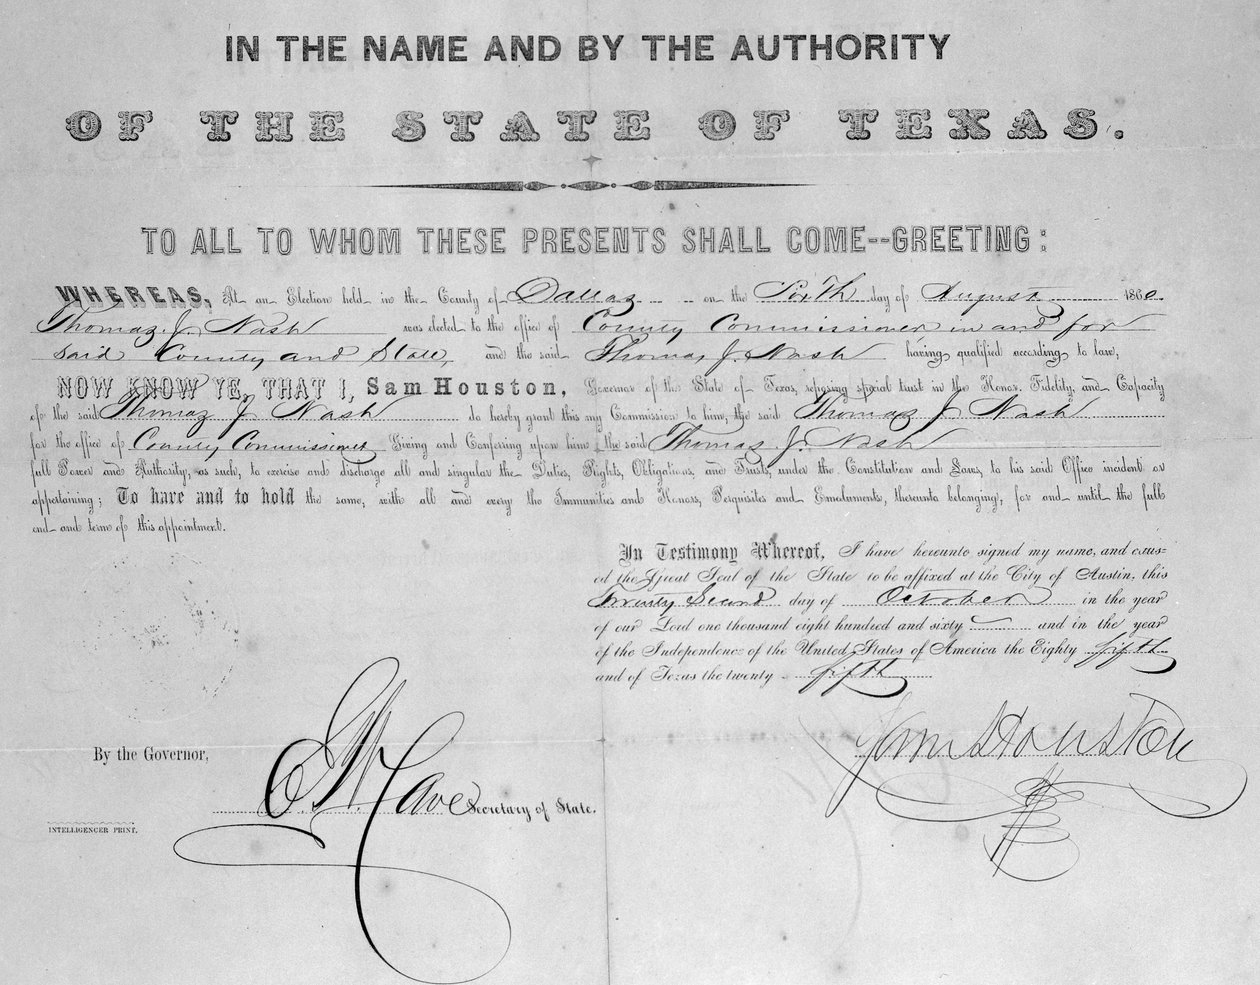 IN THE NAME AND BY THE AUTHORITY
OF THE STATE OF TEXAS.
TO ALL TO WHOM THESE PRESENTS SHALL COME--GREETING:
WHEREAS, At an Election held in the County of Dallas on the Sixth day of August 1860.
Thomas J. Nash was elected to the office of County Commissioner in and for
said County and State, and the said Thomas J. Nash having qualified according to law,
NOW KNOW YE, THAT I, Sam Houston, Governor of the State of Texas, reposing special trust in the Honor, Fidelity, and Capacity
of the said Thomas J Nash do hereby grant this my Commission to him, the said Thomas J Nash
for the office of County Commissioner Giving and Conferring upon him the said Thomas J. Nash
full Power and Authority, as such, to exercise and discharge all and singular the Duties, Rights, Obligations, and Trusts, under the Constitution and Laws, to his said Office incident or
appertaining; To have and to hold the same, with all and every the Immunities and Honors, Perquisites and Emoluments, thereunto belonging, for and until the full
end and term of this appointment.
In Testimony Whereof, I have hereunto signed my name, and caus=
ed the Great Seal of the State to be affixed at the City of Austin, this
Twenty Second day of October in the year
of our Lord one thousand eight hundred and sixty and in the year
of the Independence of the United States of America the Eighty fifth
and of Texas the twenty fifth
Sam Houston
By the Governor,
E. W. Cave Secretary of State.
INTELLIGENCER PRINT.